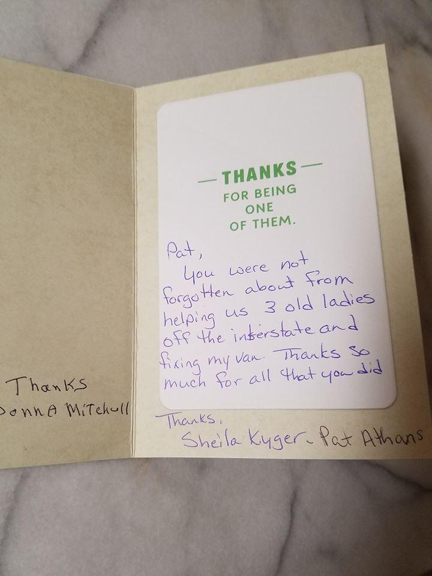 THANKS
FOR BEING
ONE
OF THEM.
Pat,
You were not
forgotten about from
helping us 3 old ladies
off the interstate and
fixing my van. Thanks so
much for all that you did
Thanks,
Sheila Kyger - Pat Athans
Thanks
Donna Mitchell